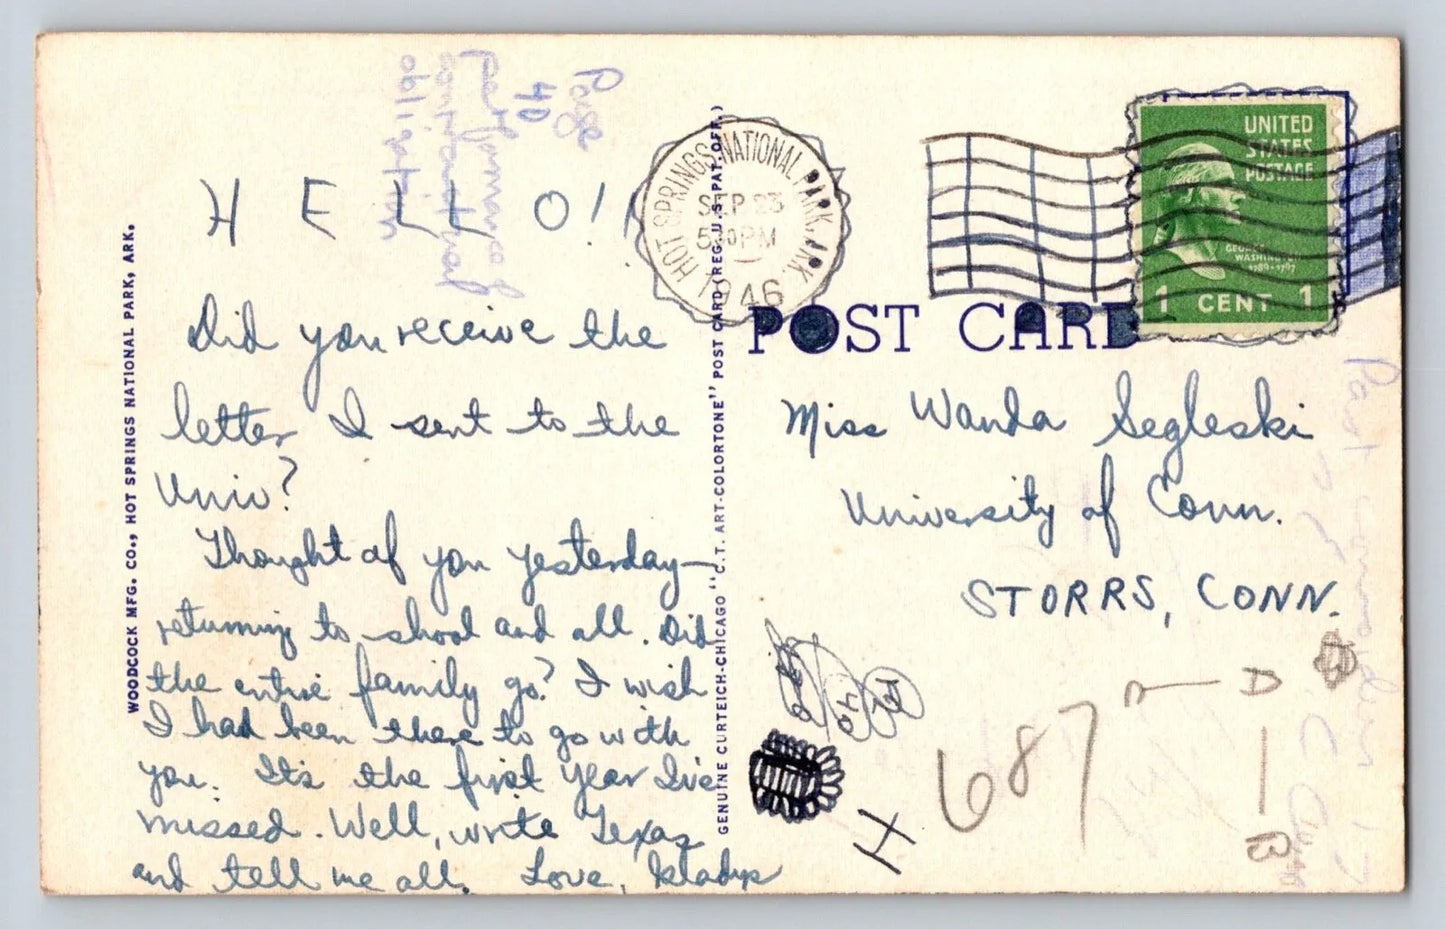 Page
40
performance of
contractual
obligation
HELLO!
Did you receive the
letter I sent to the
Univ?
Thought of you yesterday—
returning to shool and all. Did
the entire family go? I wish
I had been there to go with
you. It's the first year I've
missed. Well, write Texas
and tell me all. Love, Gladys
WOODCOCK MFG. CO., HOT SPRINGS NATIONAL PARK, ARK.
GENUINE CURTEICH-CHICAGO "C.T. ART-COLORTONE" POST CARD (REG. U.S. PAT. OFF.)
HOT SPRINGS NATIONAL PARK, ARK.
SEP 23
5 30 PM
1946
UNITED
STATES
POSTAGE
GEORGE
WASHINGTON
1789-1797
1 CENT 1
POST CARD
Miss Wanda Segleski
University of Conn.
STORRS, CONN.
H 687
D
B